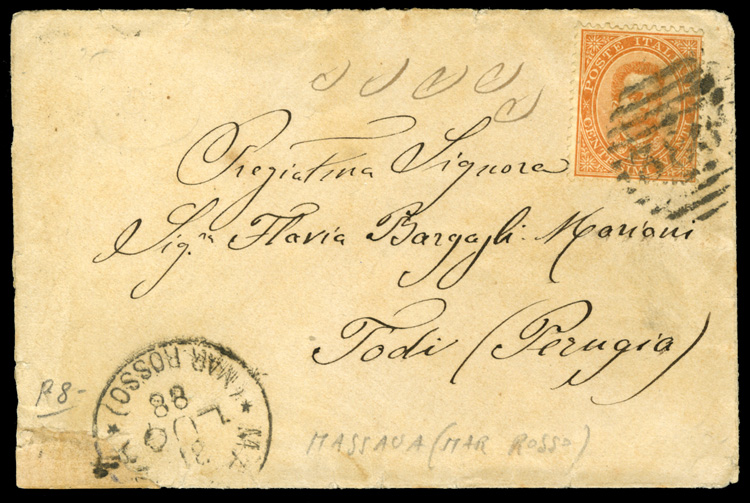 POSTE ITALIANE
CENT
Pregiat.ma Signora
Sig.ra Flavia Bargagli-Mariani
Todi (Perugia)
R8-
(MAR ROSSO)
88
MASSAUA (MAR ROSSO)